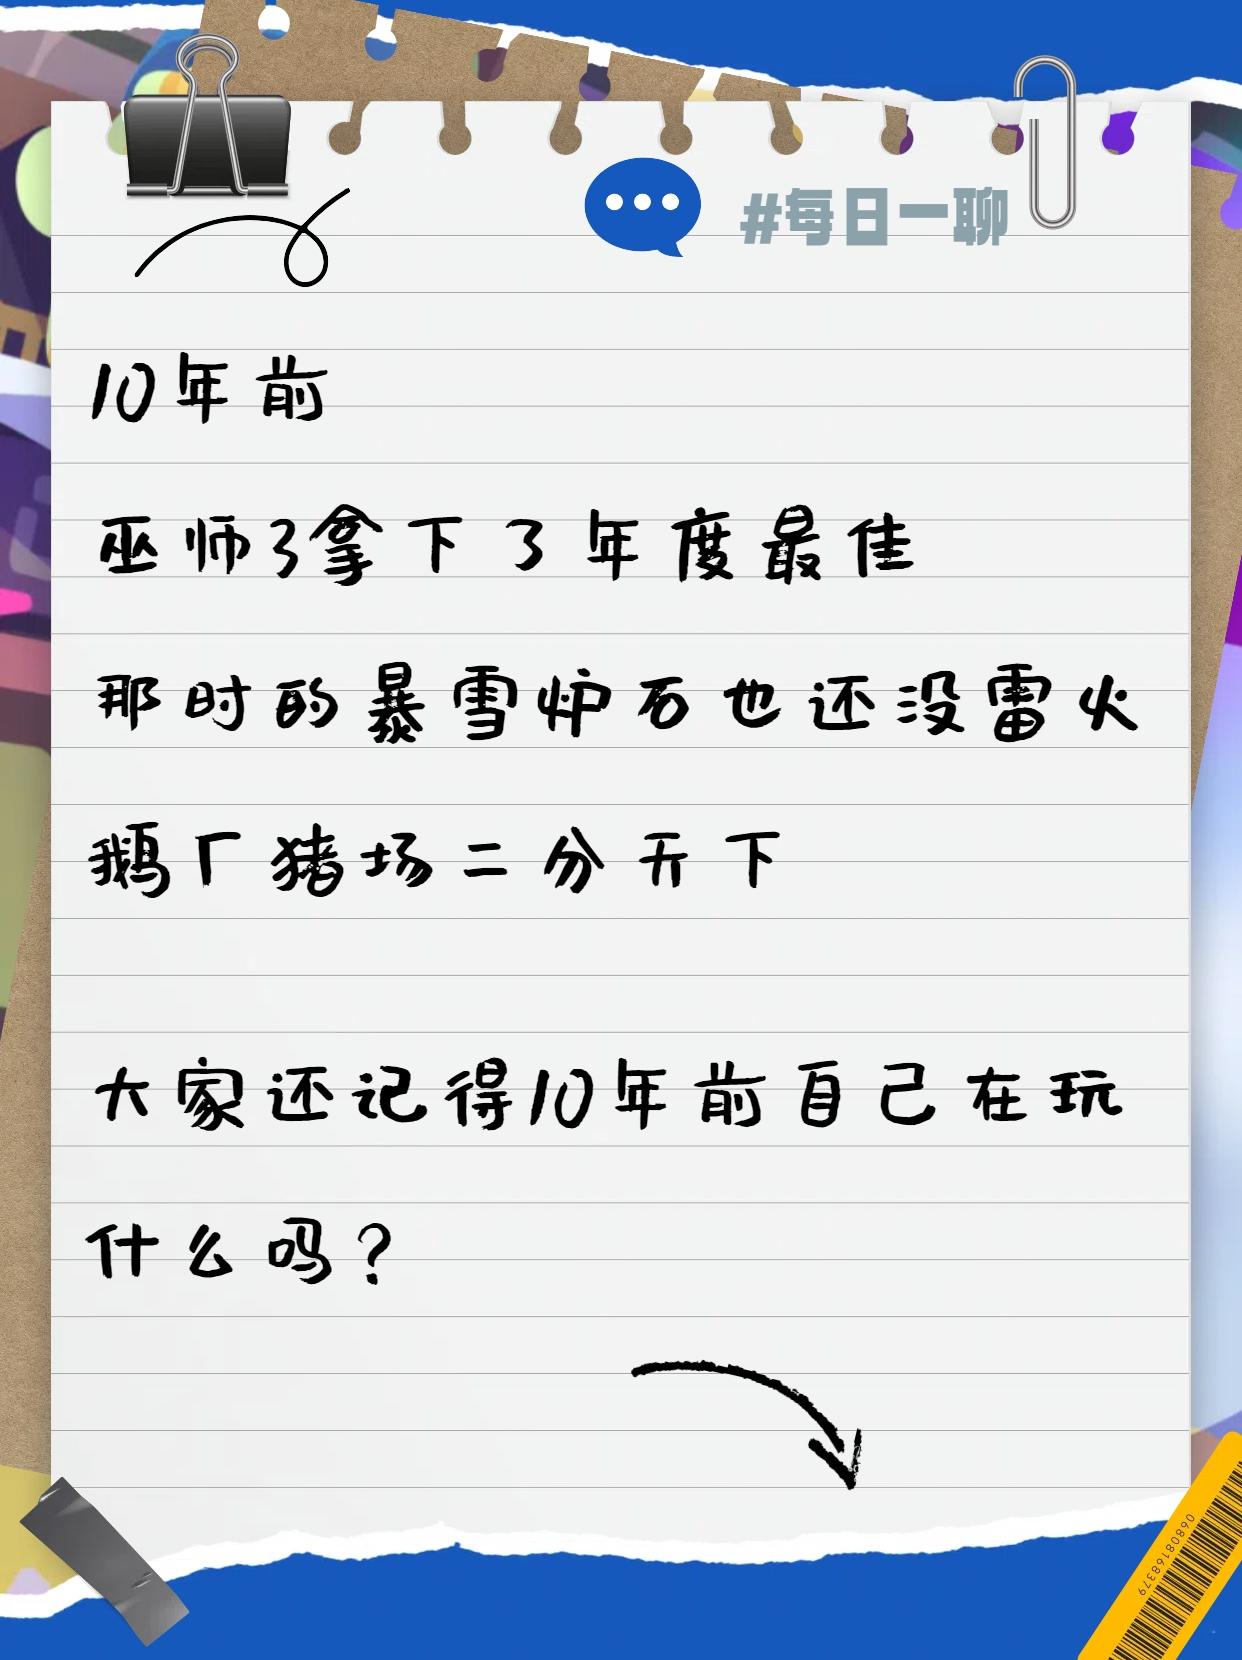 #每日一聊
10年前
巫师3拿下了年度最佳
那时的暴雪炉石也还没雷火
鹅厂猪场二分天下
大家还记得10年前自己在玩
什么吗？
06808168379